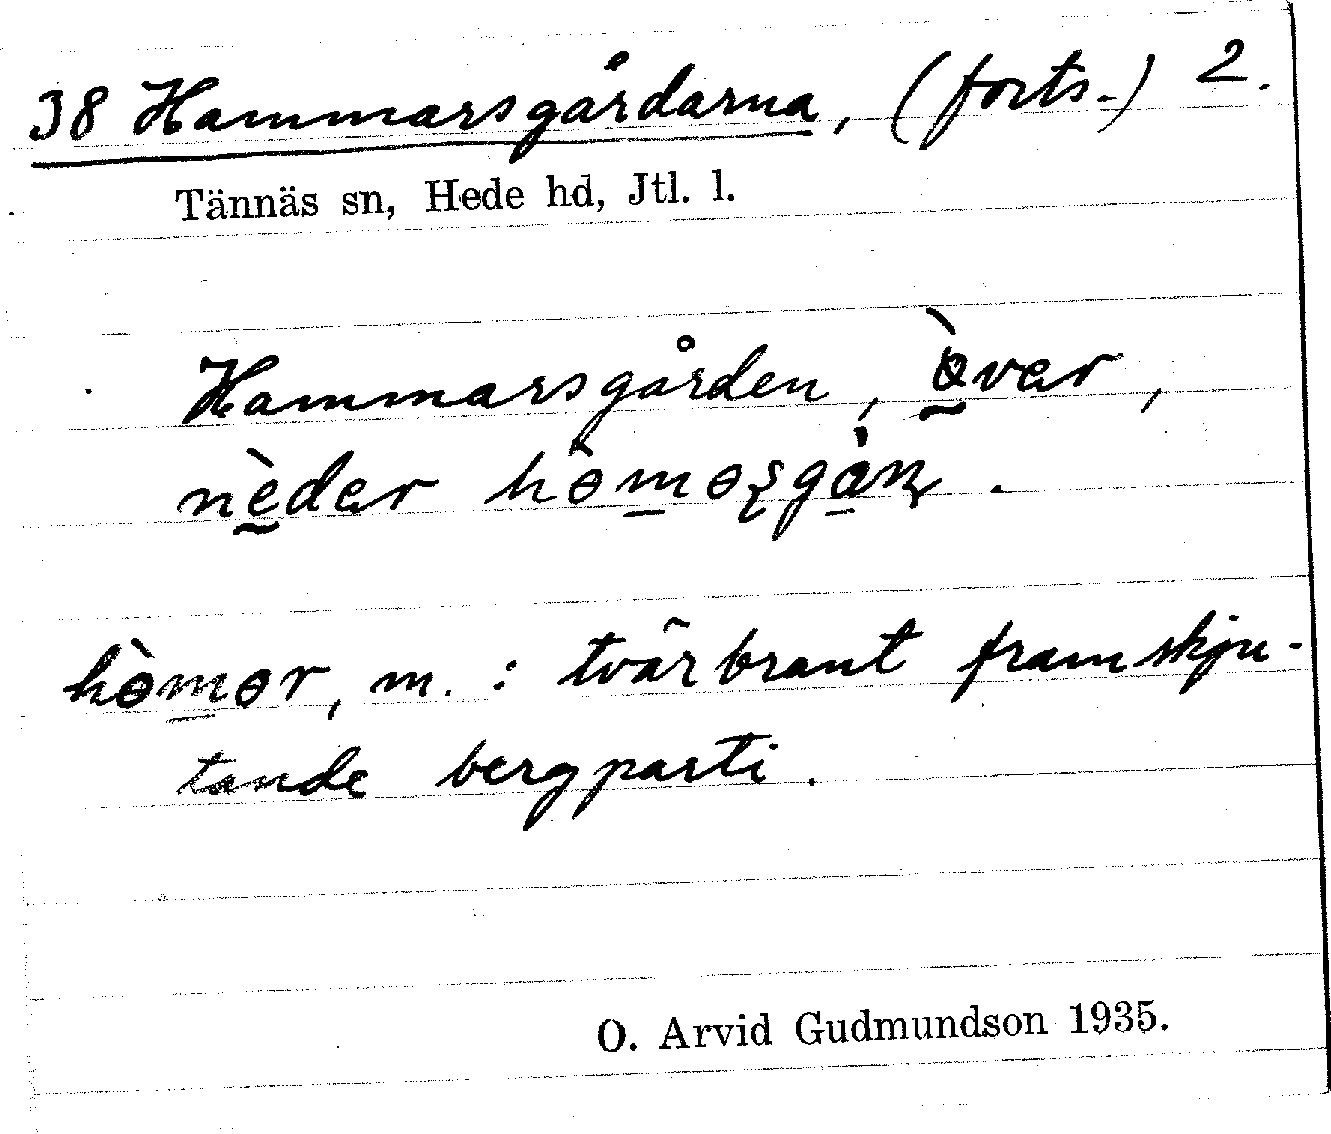 38 Hammarsgårdarna, (forts.) 2.
Tännäs sn, Hede hd, Jtl. l.
Hammarsgården, ə̀vər,
nèdər hə̀məʂgàɳ.
hə̀mər, m. : tvärbrant framskju-
tande bergparti.
O. Arvid Gudmundson 1935.